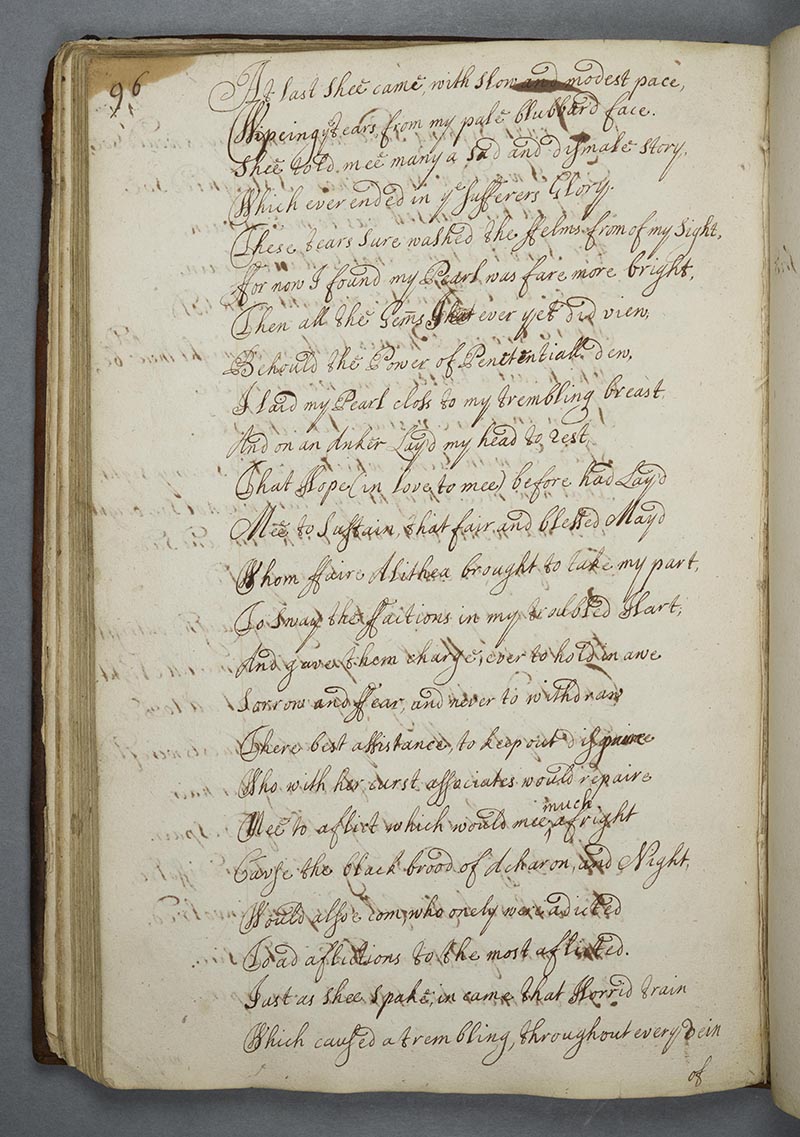 96
At last shee came, with slow and modest pace,
Wipeing yͤ tears from my pale blubbard face.
Shee told mee many a sad and dismale story,
Which ever ended in yͤ sufferers Glory.
These tears sure washed the ffelms from of my sight,
ffor now I found my Pearl was fare more bright,
Then all the Gem̅s that ever yet did view,
Behould the Power of Penetentiall dew,
I laid my Pearl closs to my trembling breast
And on an Anker Layd my head to rest,
That Hope (in love to mee) before had Layd
Mee to sustain, that fair and blessed Mayd
Whom ffaire Alithea brought to take my part,
To sway the ffactions in my troubled Hart,
And gave them charge, ever to hold in awe
Sorrow and ffear, and never to withdraw
There best assistance, to keep out dispaire
Who with her curst associates would repaire
Mee to aflict which would mee much afright
Cause the black brood of Acharon, and Night,
Would allsoe com, who onely were adicted
To ad aflictions to the most aflicted.
Just as shee spake, in came that Horrid train
Which caused a trembling, throughout every Vein
of